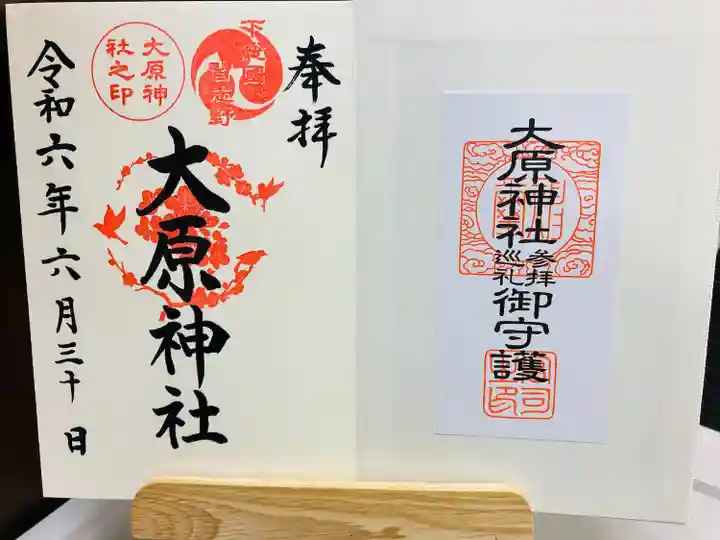 奉拝
下総国
習志野
大原神
社之印
大原神社
令和六年六月三十日
大原神社
参拝
巡礼
御守護